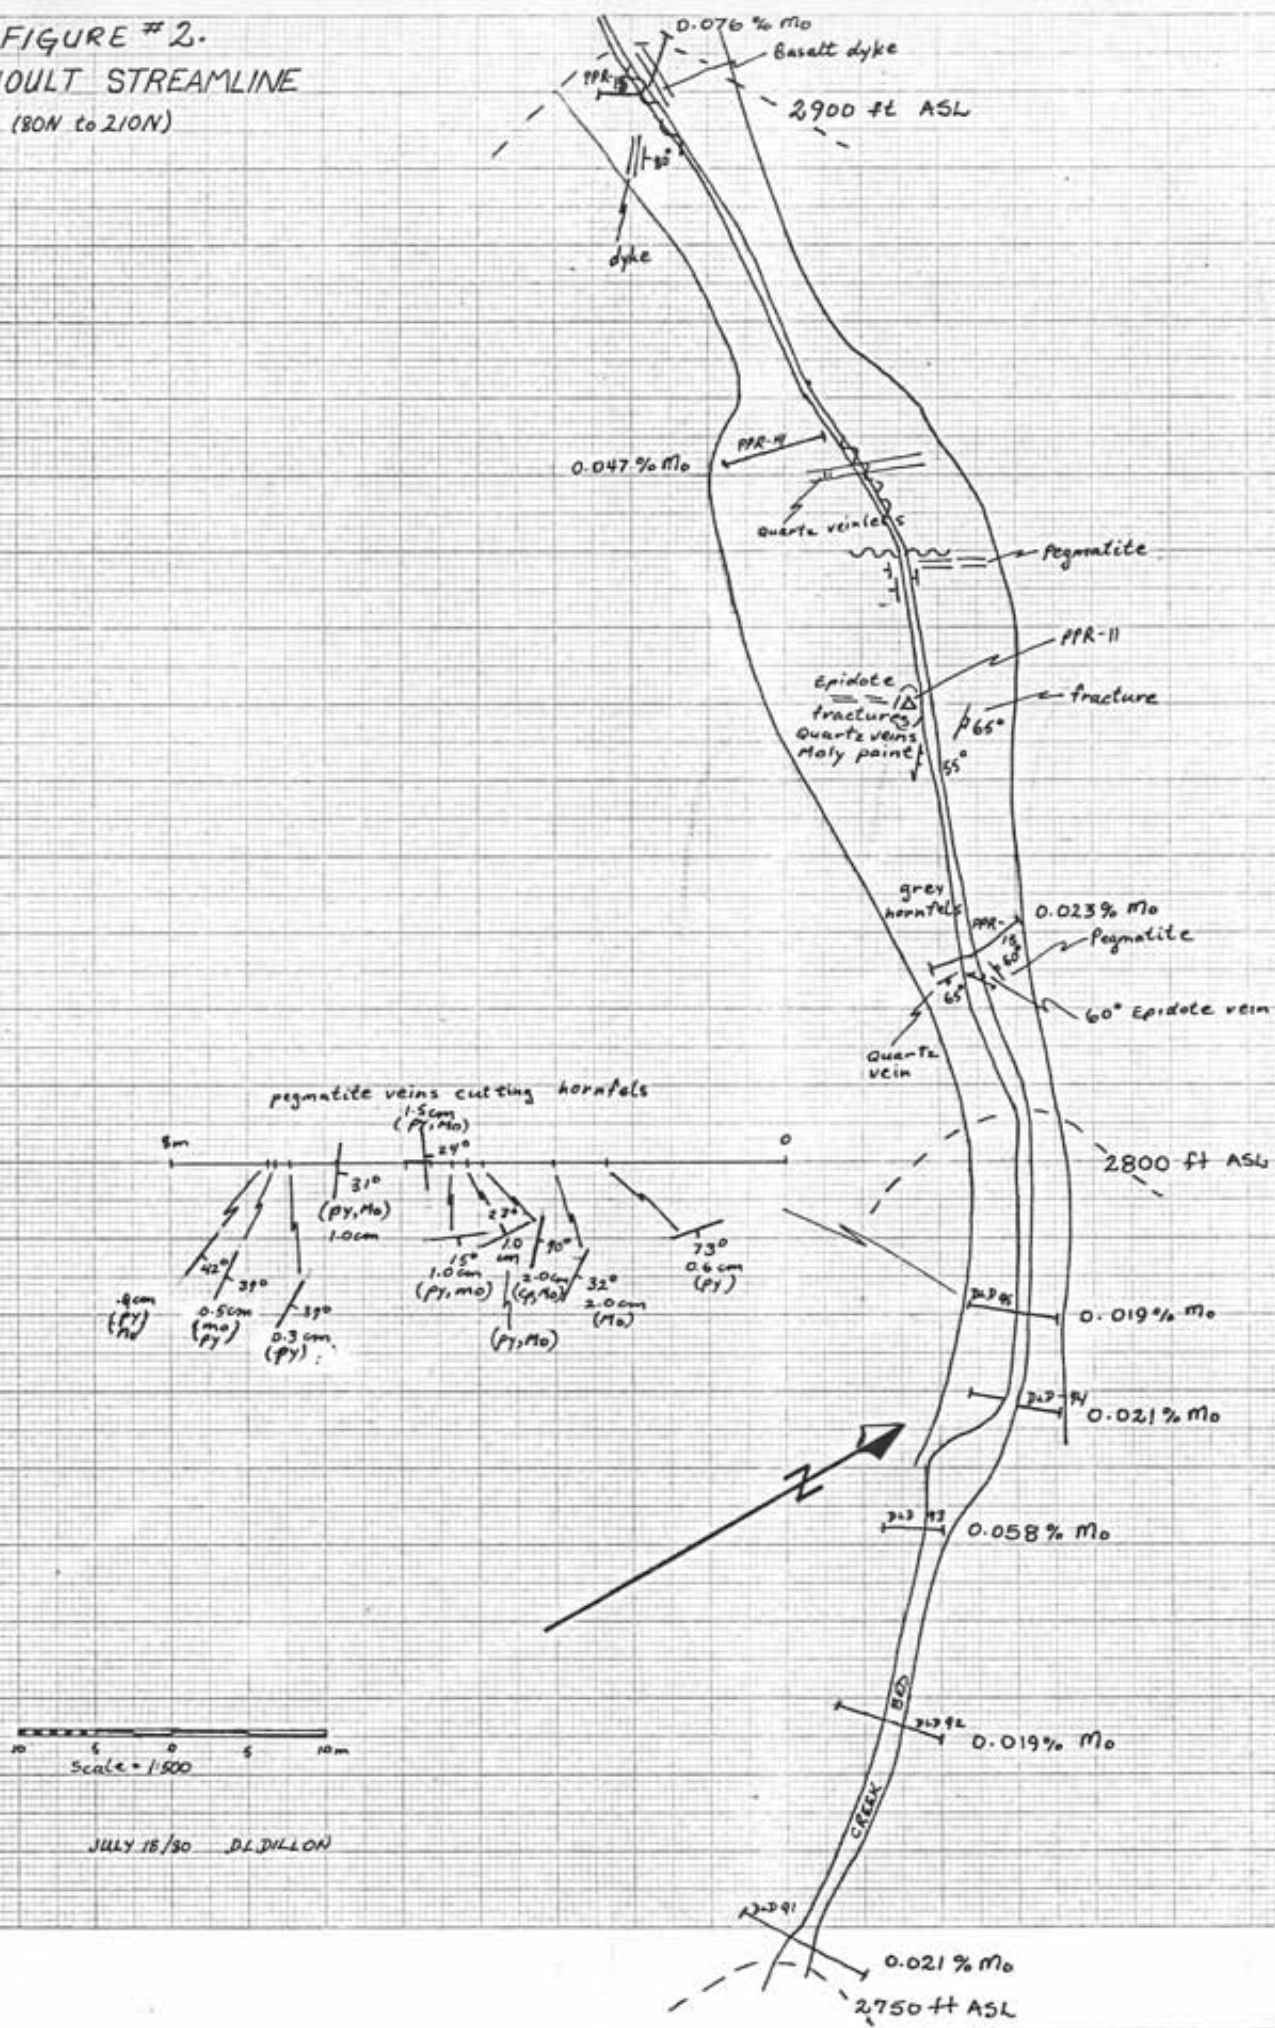 FIGURE #2.
OULT STREAMLINE
(80N to 210N)
0.076 % Mo
Basalt dyke
PPR-15
2900 ft ASL
80°
dyke
PPR-14
0.047 % Mo
Quartz veinlets
Pegmatite
PPR-11
Epidote
fractures
Quartz veins
Moly paint
fracture
65°
55°
grey
hornfels
PPR-
0.023 % Mo
60°
Pegmatite
65°
60° Epidote vein
Quartz
vein
pegmatite veins cutting hornfels
1.5cm
(Py, Mo)
8m
24°
0
31°
(py, Mo)
1.0cm
2800 ft ASL
42°
39°
0.5cm
(mo)
py
39°
0.3 cm
(py)
15°
1.0cm
(py, mo)
27°
1.0
cm
(py, Mo)
90°
2.0cm
(cp, Mo)
32°
2.0cm
(Mo)
73°
0.6 cm
(py)
(py)
Mo
DLD 95
0.019% Mo
DLD-94
0.021% Mo
DLD 93
0.058% Mo
CREEK BED
DLD 92
0.019% Mo
10 5 0 5 10m
Scale = 1:500
JULY 18/80 DL DILLON
DLD 91
0.021 % Mo
2750 ft ASL